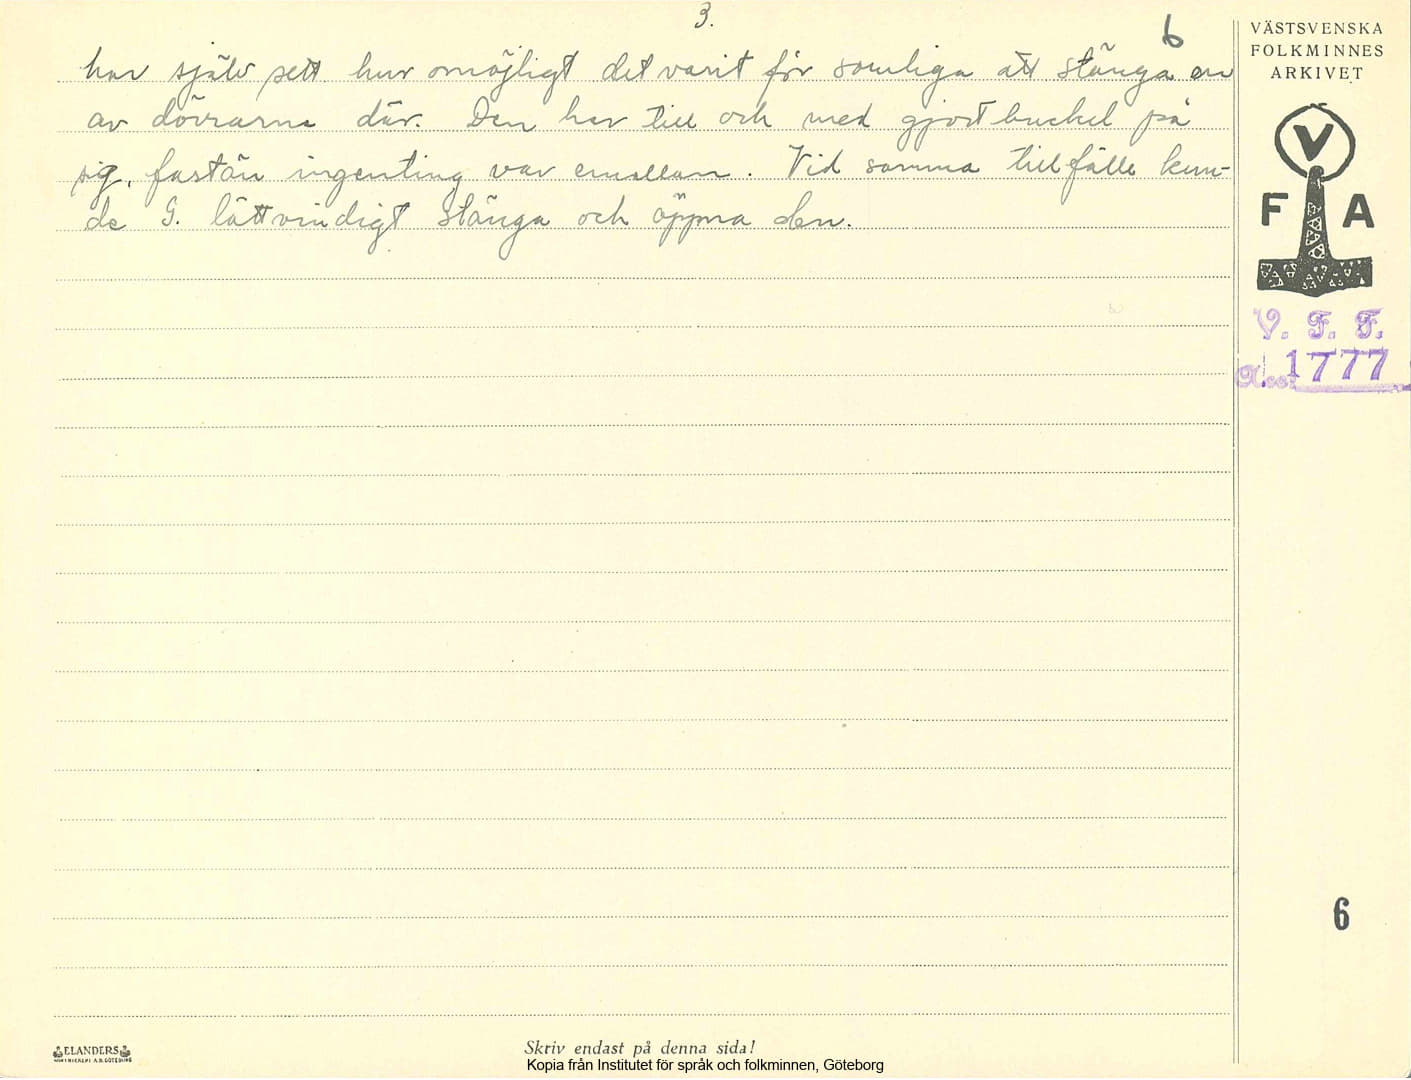 3.
6
har själv sett hur omöjligt det varit för somliga att stänga en
av dörrarna där. Den har till och med gjort buckel på
sig, fastän ingenting var emellan. Vid samma tillfälle kun-
de G. lättvindigt stänga och öppna den.
VÄSTSVENSKA
FOLKMINNES
ARKIVET
V
F A
V. F. F.
Acc. 1777
6
ELANDERS
Skriv endast på denna sida!
Kopia från Institutet för språk och folkminnen, Göteborg